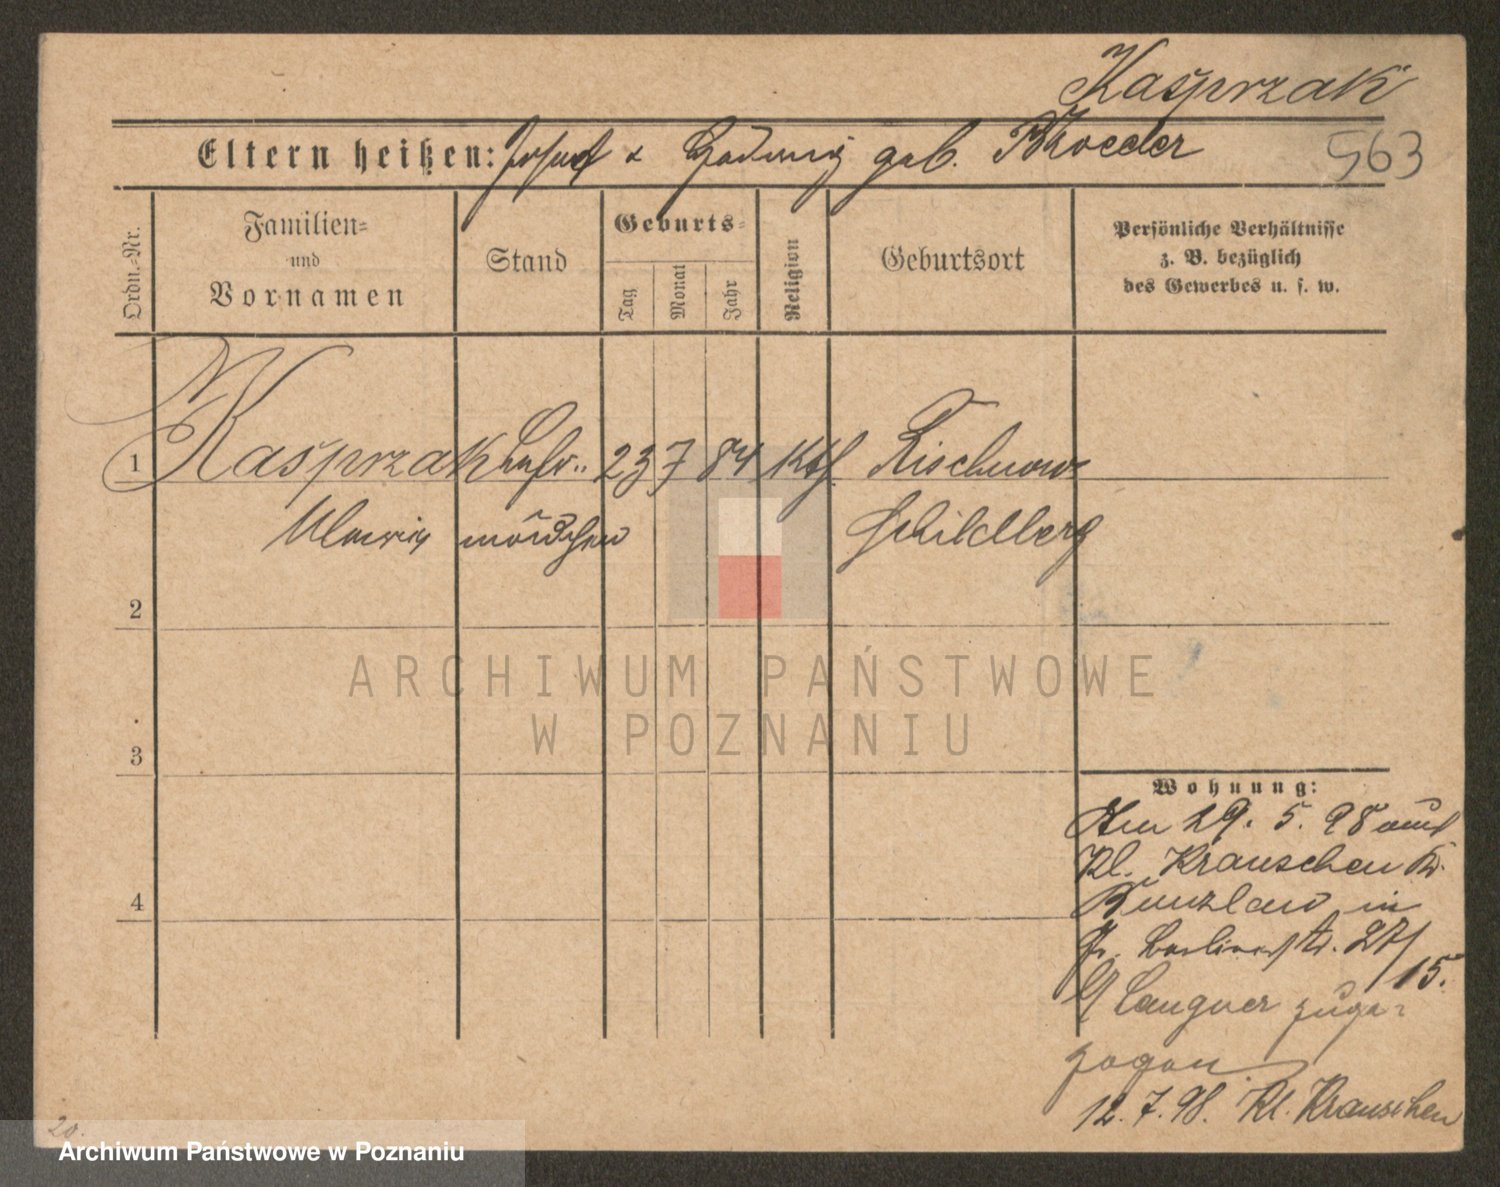 Kasprzak
Eltern heißen: Josef & Hedwig geb. Broeder
563
Ordn.-Nr.
Familien-
und
Vornamen
Stand
Geburts-
Tag
Monat
Jahr
Religion
Geburtsort
Persönliche Verhältnisse
z. B. bezüglich
des Gewerbes u. s. w.
1 Kasprzak 23 7 84 Kth.
mädchen Schildberg
2
ARCHIWUM PAŃSTWOWE
W POZNANIU
3
4
Wohnung:
Am 29. 5. 98 aus
Kl. Krauschen Kr.
Bunzlau in
Berlinerstr. 27/
15.
b/ Langner zuge-
zogen
12. 7. 98. Kl. Krauschen
20.
Archiwum Państwowe w Poznaniu